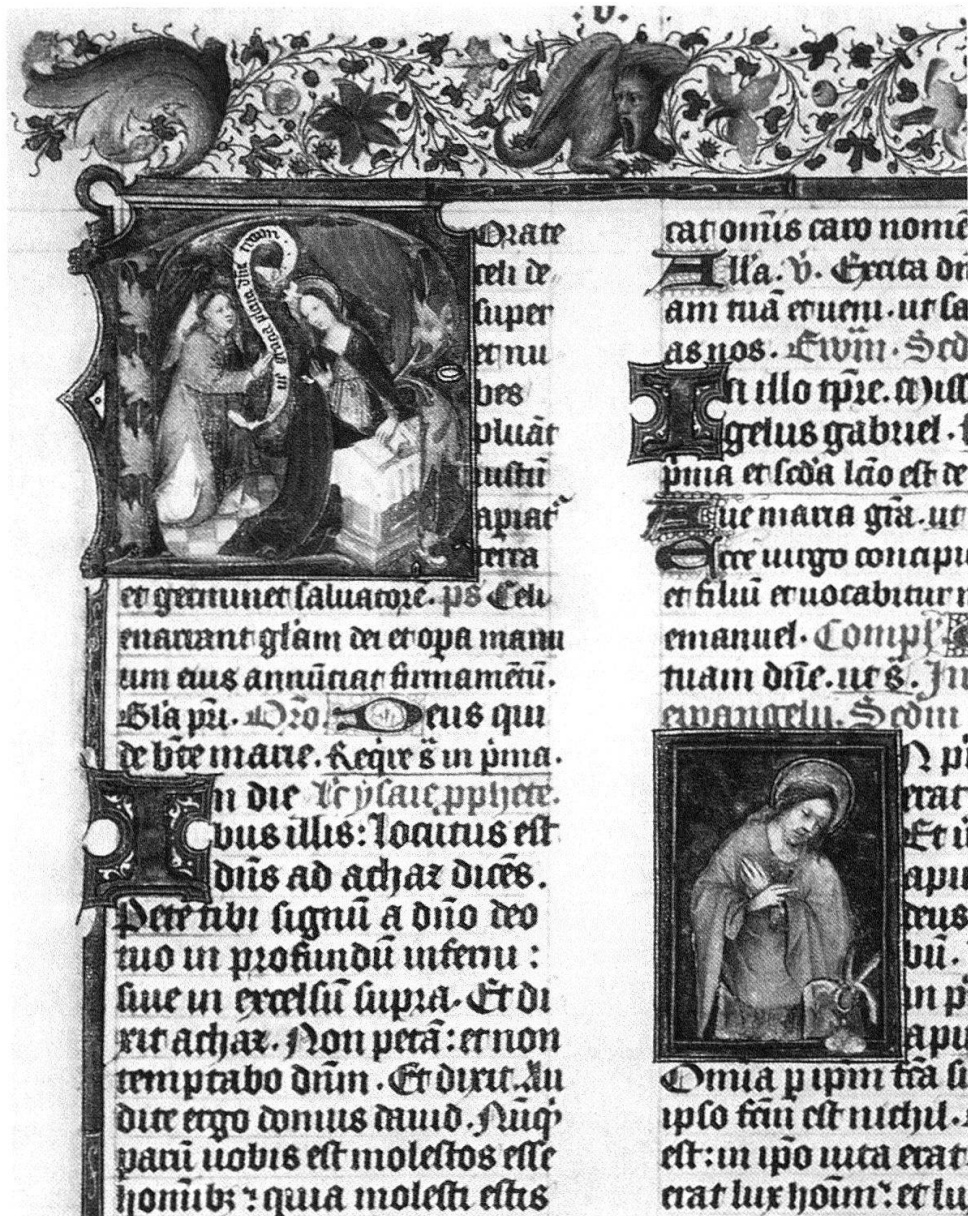 .v.
ave gracia plena dns tecum.
Orate
celi de
super
et nu
bes
pluāt
iustū
apiat᷑
terra
et germinet saluatorē. ps Celi
enarrant gl̄am dei et opa manu
um eius annūciat firmamētū.
Gl̄a pr̄i. Oro. Deus qui
de bt̄e marie. Reqre s̄ in pma.
In die lc ysaie pphete.
bus illis: Locutus est
dn̄s ad achaz dicēs.
Pete tibi signū a dn̄o deo
tuo in profundū inferni:
siue in excelsū supra. Et di
xit achaz. Non petā: et non
temptabo dn̄m. Et dixit. Au
dite ergo domus dauid. Nūq̄
parū uobis est molestos esse
hominibꝫ: quia molesti estis
cat omīs caro nomē
All̄a. v̄. Excita dn̄
am tuā et ueni. ut sa
as nos. Ewm. Scd
In illo tp̄re. Miss
gelus gabriel.
pma et scda lc̄o est de
Aue maria gr̄a. ut
Ecce uirgo concipi
et filiū et uocabitur n
emanuel. Comp̄
tuam dn̄e. ut s̄. In
ewangelii. Scdm
N pi
erat
Et
apu
deus
bū.
in p
apu
Omīa p ipm fc̄a s
ipso fcm̄ est nichil.
est: in ipo uita erat
erat lux hoīm: et lu